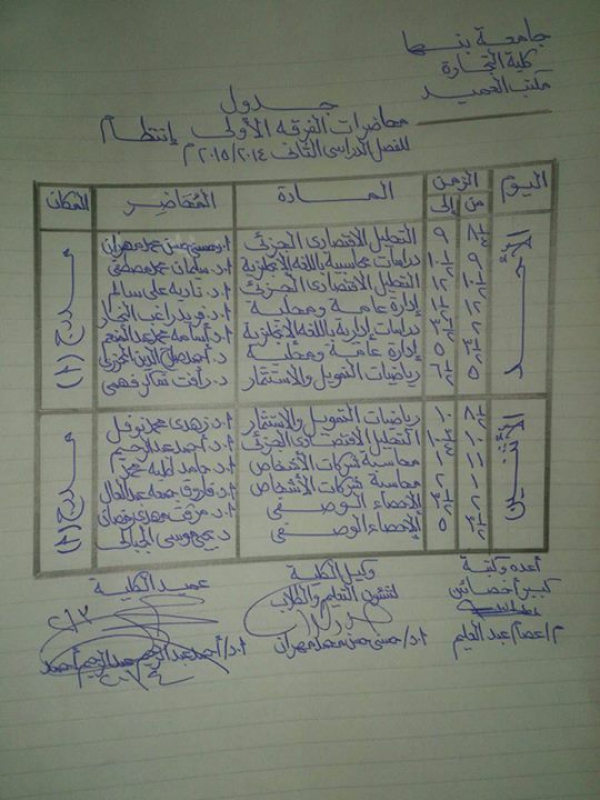 جامعة بنها
كلية التجارة
مكتب العميد
جدول
محاضرات الفرقة الأولى إنتظام
للفصل الدراسى الثانى ٢٠١٥/٢٠١٤ م
اليوم الزمن المادة المُحَاضِر المكان
من إلى
الأحد مدرج (١)
٩ التحليل الاقتصادى الجزئى أ.د. حسنى حسن محمد مهران
٩ ١٠ ١/٢ دراسات محاسبية باللغة الإنجليزية د. سليمان محمد مصطفى
١٠ ١/٢ ١٢ التحليل الاقتصادى الجزئى أ.د. نادية على سالم
١٢ ١ ١/٢ إدارة عامة ومحلية أ.د. فريد راغب النجار
٢ ٣ ١/٢ دراسات إدارية باللغة الإنجليزية د. أسامة محمد عبدالمنعم
٣ ١/٢ ٥ إدارة عامة ومحلية د. أحمد صلاح الدين
٥ ٦ ١/٢ رياضيات التمويل والاستثمار د. رأفت شاكر فهمى
الأثنين مدرج (١)
٨ ١/٢ ١٠ رياضيات التمويل والاستثمار أ.د. زهدى محمد نوفل
١٠ التحليل الاقتصادى الجزئى أ.د. أحمد عبدالرحيم
١١ محاسبة شركات الأشخاص د. حامد
١ ٢ محاسبة شركات الأشخاص أ.د. فاروق جمعة عبدالعال
٢ ٣ ١/٢ الإحصاء الوصفى د. مرفت
٣ ١/٢ ٥ الإحصاء الوصفى د. موسى
أعده وكتبة
كبير أخصائين
م/ عصام عبد العليم
وكيل الكلية
لشئون التعليم والطلاب
ا.د/ حسنى حسن محمد مهران
عميد الكلية
ا.د/ أحمد عبدالرحيم